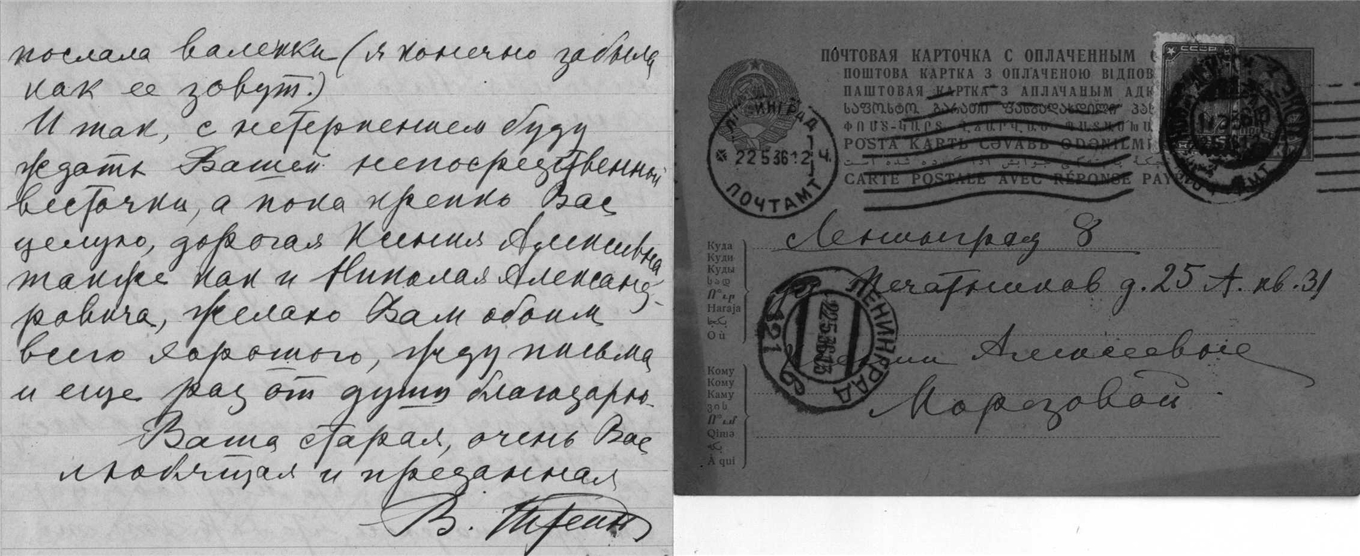 послала валенки (я конечно забыла
как ее зовут.)
Итак, с нетерпением буду
ждать Вашей непосредственной
весточки, а пока крепко Вас
целую, дорогая Ксения Алексеевна
также как и Николая Александ-
ровича, желаю Вам обоим
всего хорошего, жду письма
и еще раз от души благодарю.
Ваша старая, очень Вас
любящая и преданная
В.
ПОЧТОВАЯ КАРТОЧКА С ОПЛАЧЕННЫМ
ПОШТОВА КАРТКА З ОПЛАЧЕНОЮ ВІДПОВ
ПАШТОВАЯ КАРТКА З АПЛАЧАНЫМ АД
POSTA KARTЬ CƏVABЬ ƏDƏNILMI
CARTE POSTALE AVEC RÉPONSE PAY
СССР
ЛЕНИНГРАД
22 5 36 12 Ч.
ПОЧТАМТ
Куда
Куди
Куды
Haraja
Ленинград 8
Печатников д. 25 А. кв. 31
ЛЕНИНГРАД
22 5 36
121
Кому
Кому
Каму
Qimə
À qui
Алексеевне
Морозовой